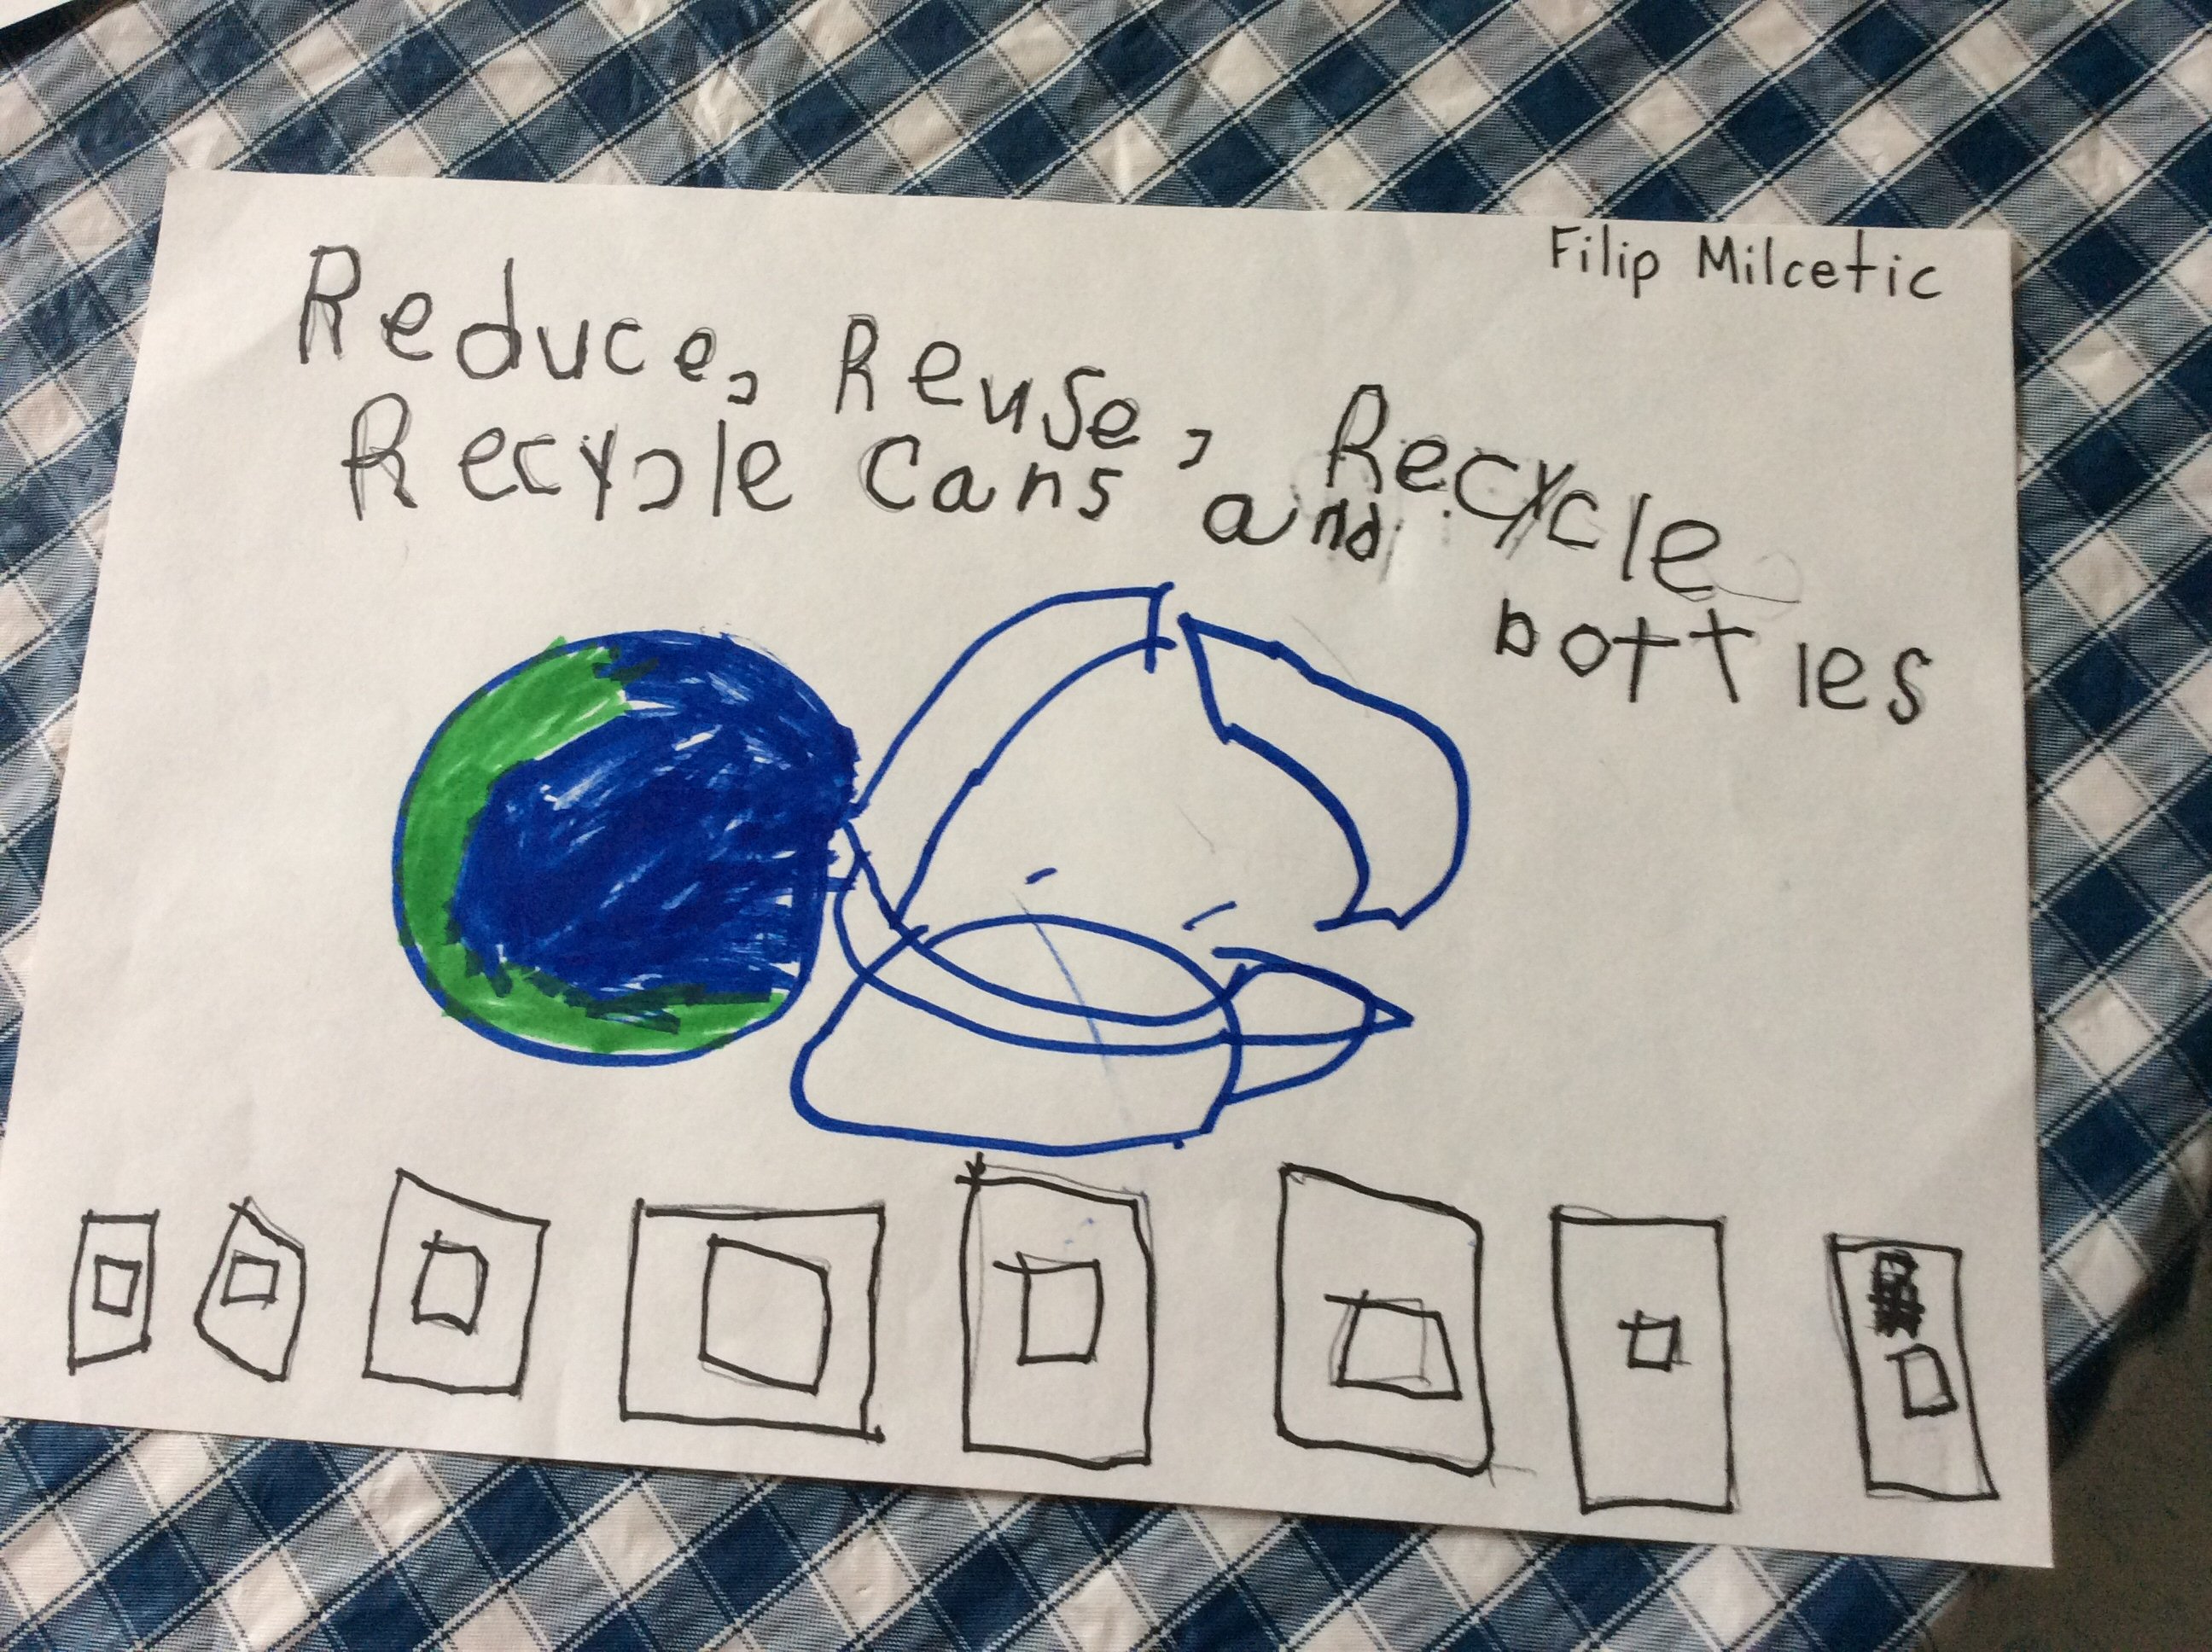 Filip Milcetic
Reduce, Reuse, Recycle
Recycle Cans and
bottles